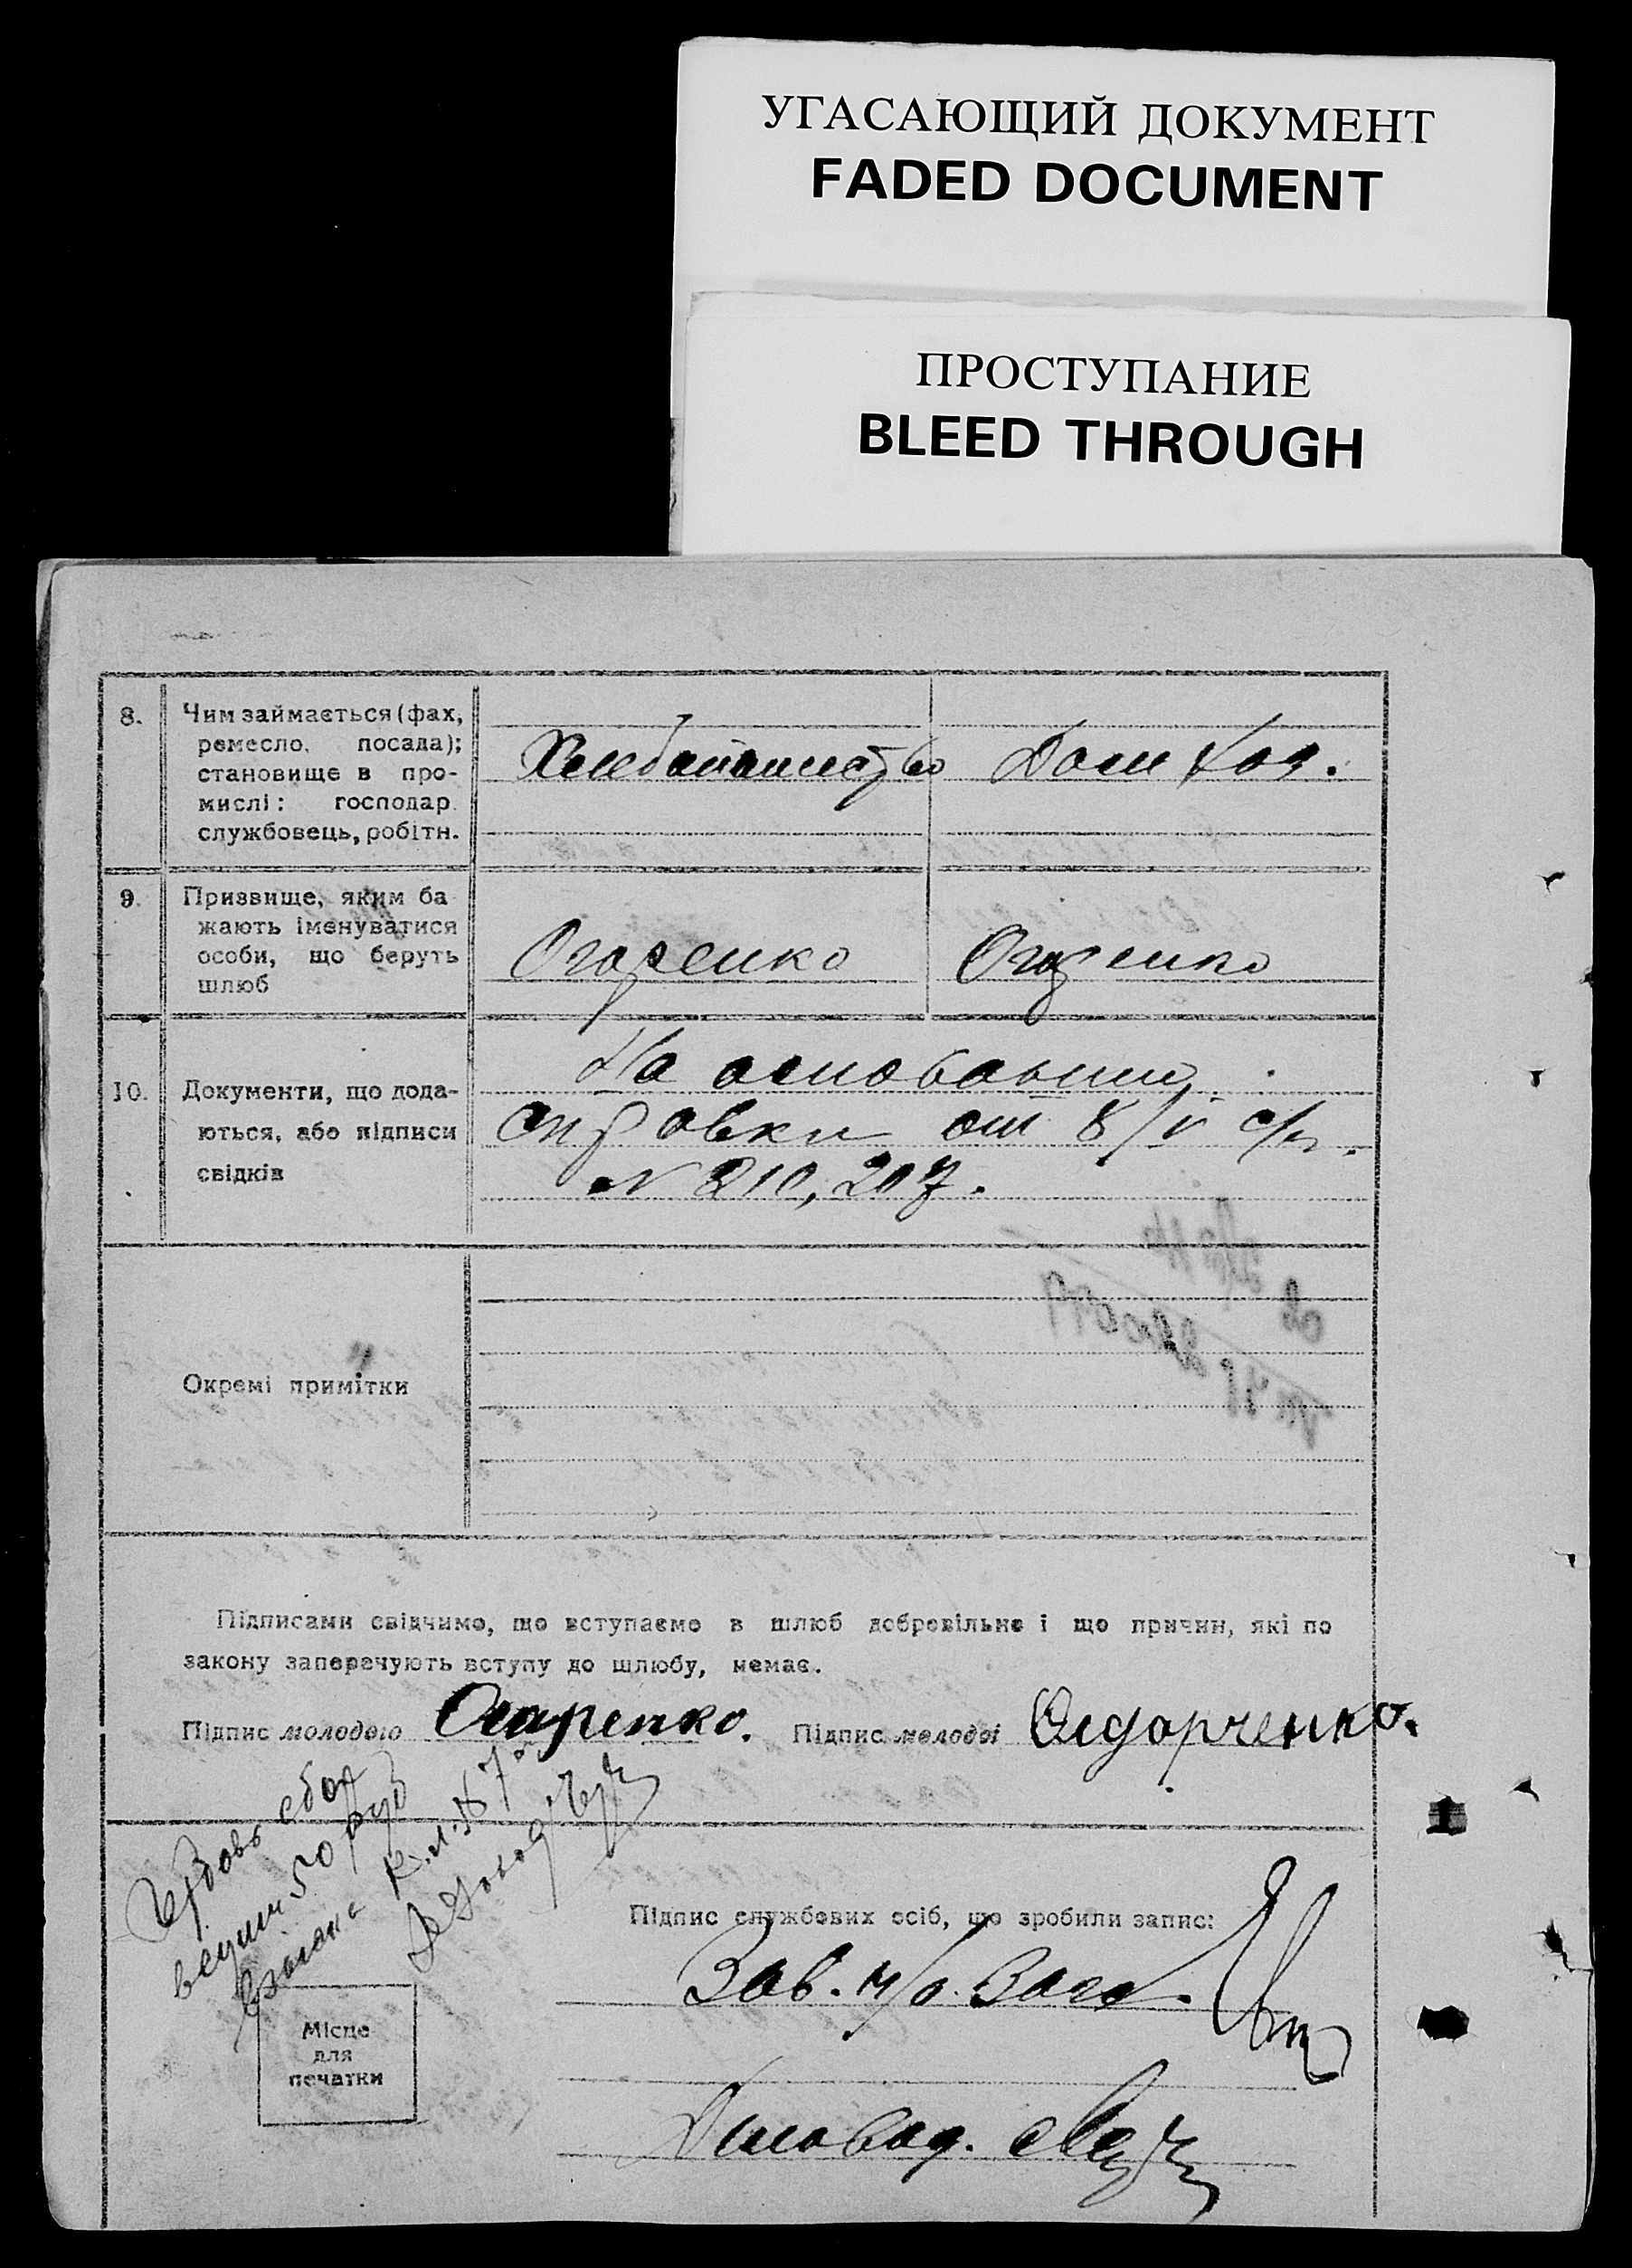 УГАСАЮЩИЙ ДОКУМЕНТ
FADED DOCUMENT
ПРОСТУПАНИЕ
BLEED THROUGH
8. Чим займається (фах,
ремесло, посада);
становище в про-
мислі: господар
службовець, робітн.
Хлебопашество
Дом хоз.
9. Призвище, яким ба
жають іменуватися
особи, що беруть
шлюб
Огаренко
Огаренко
10. Документи, що дода-
ються, або підписи
свідків
На основании
справки от 8/V с/г.
N 210, 207.
Окремі примітки
Підписами свідчимо, що вступаємо в шлюб добровільно і що причин, які по
закону заперечують вступу до шлюбу, немає.
Підпис молодого Огаренко. Підпис молодої Сидорченко.
Гербовь сбор
50 руб
Підпис службових осіб, що зробили запис:
Зав.
Місце
для
печатки
Деловод.